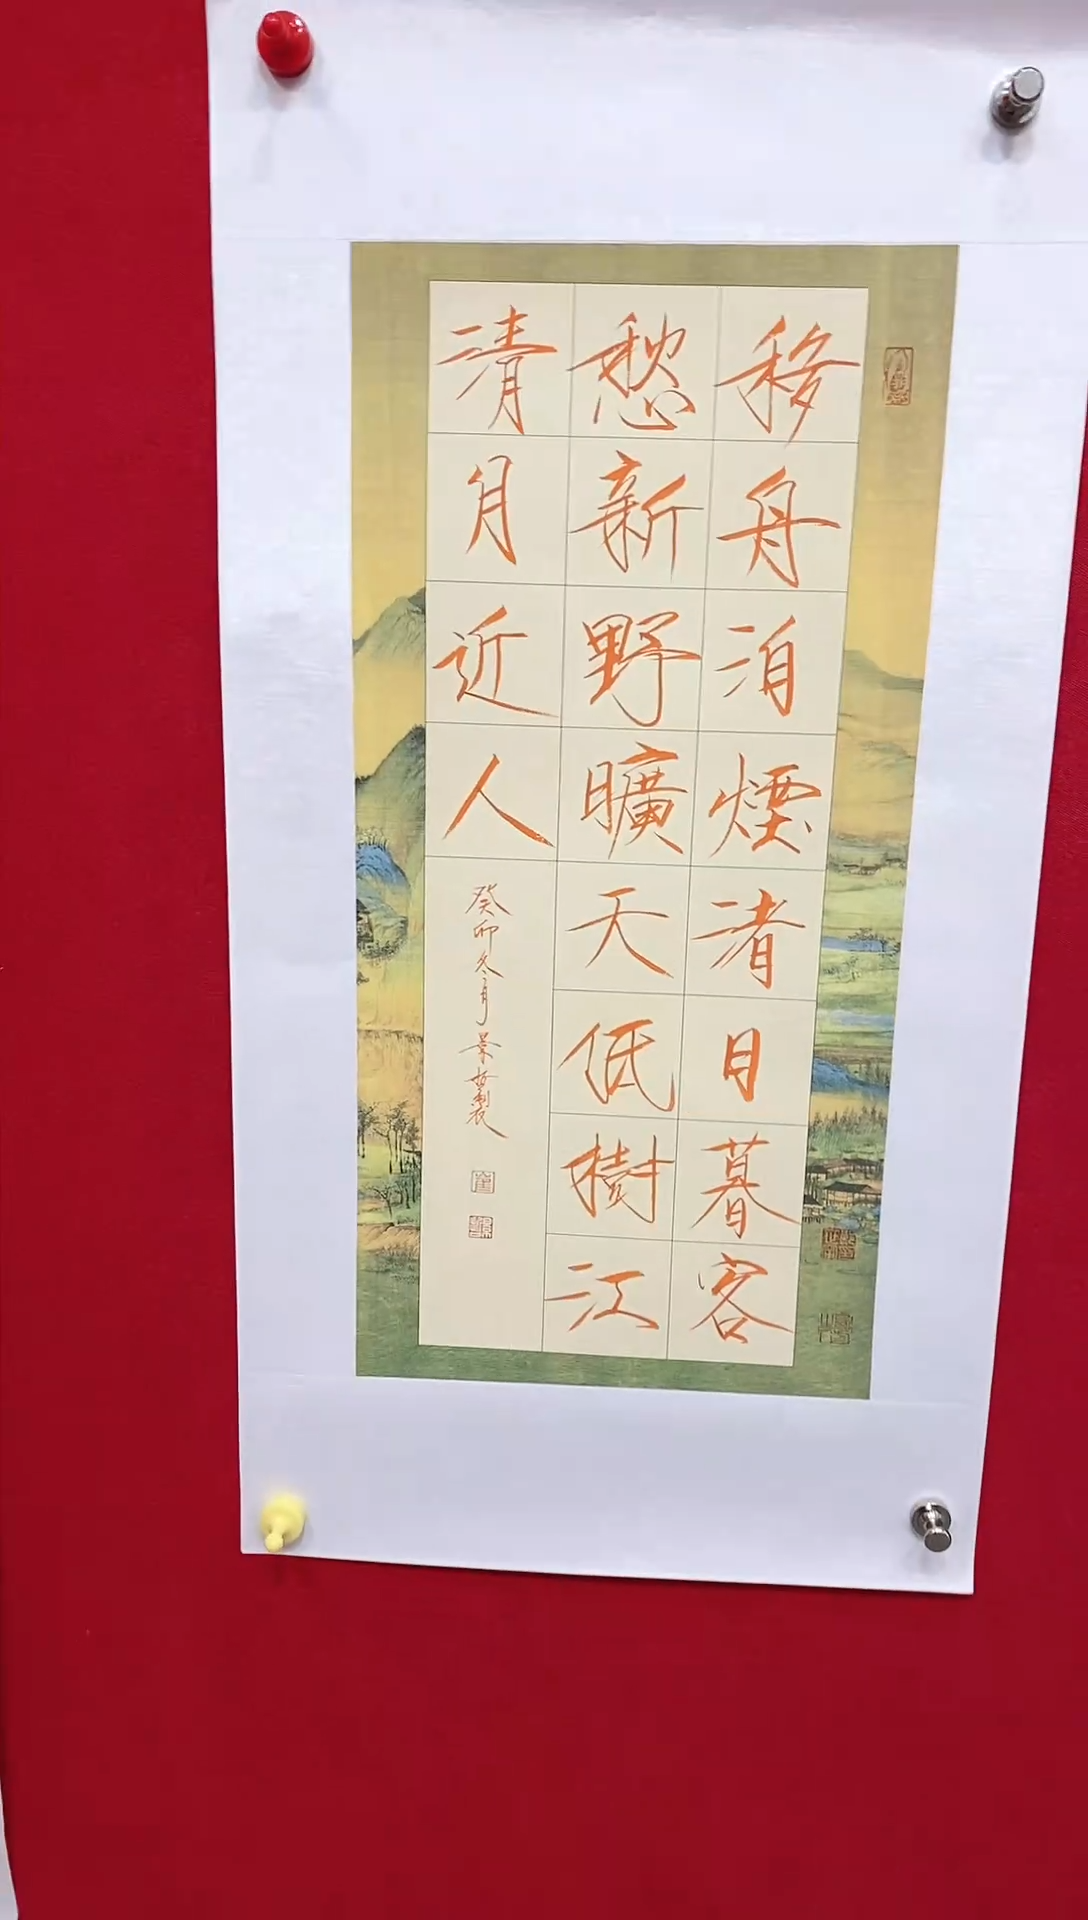 移舟泊煙渚日暮客
愁新野曠天低樹江
清月近人
癸卯冬月景喆製